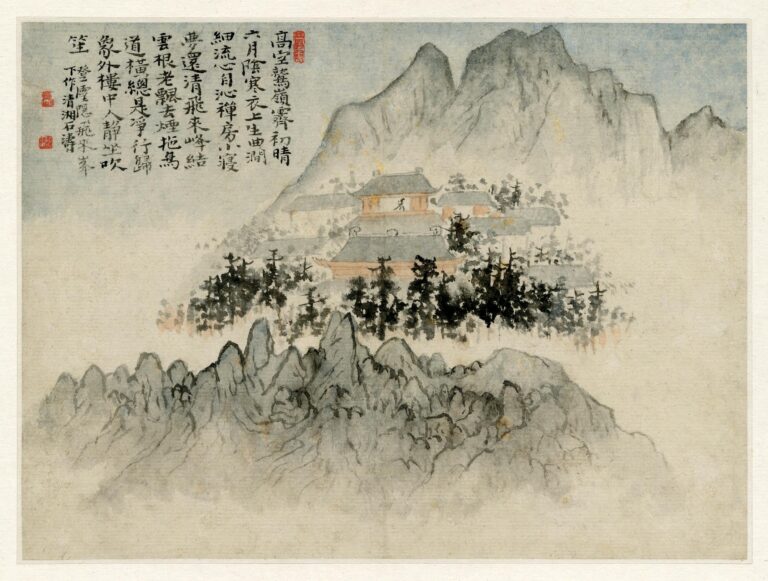 高空鷲嶺霽初晴
六月陰寒衣上生曲澗
細流心自沁禪房小寢
夢還清飛來峰結
雲根老飄去煙拖馬
道橫總是淨行歸
象外樓中人靜坐吹
笙 登靈隱飛來峯
下作清湘石濤